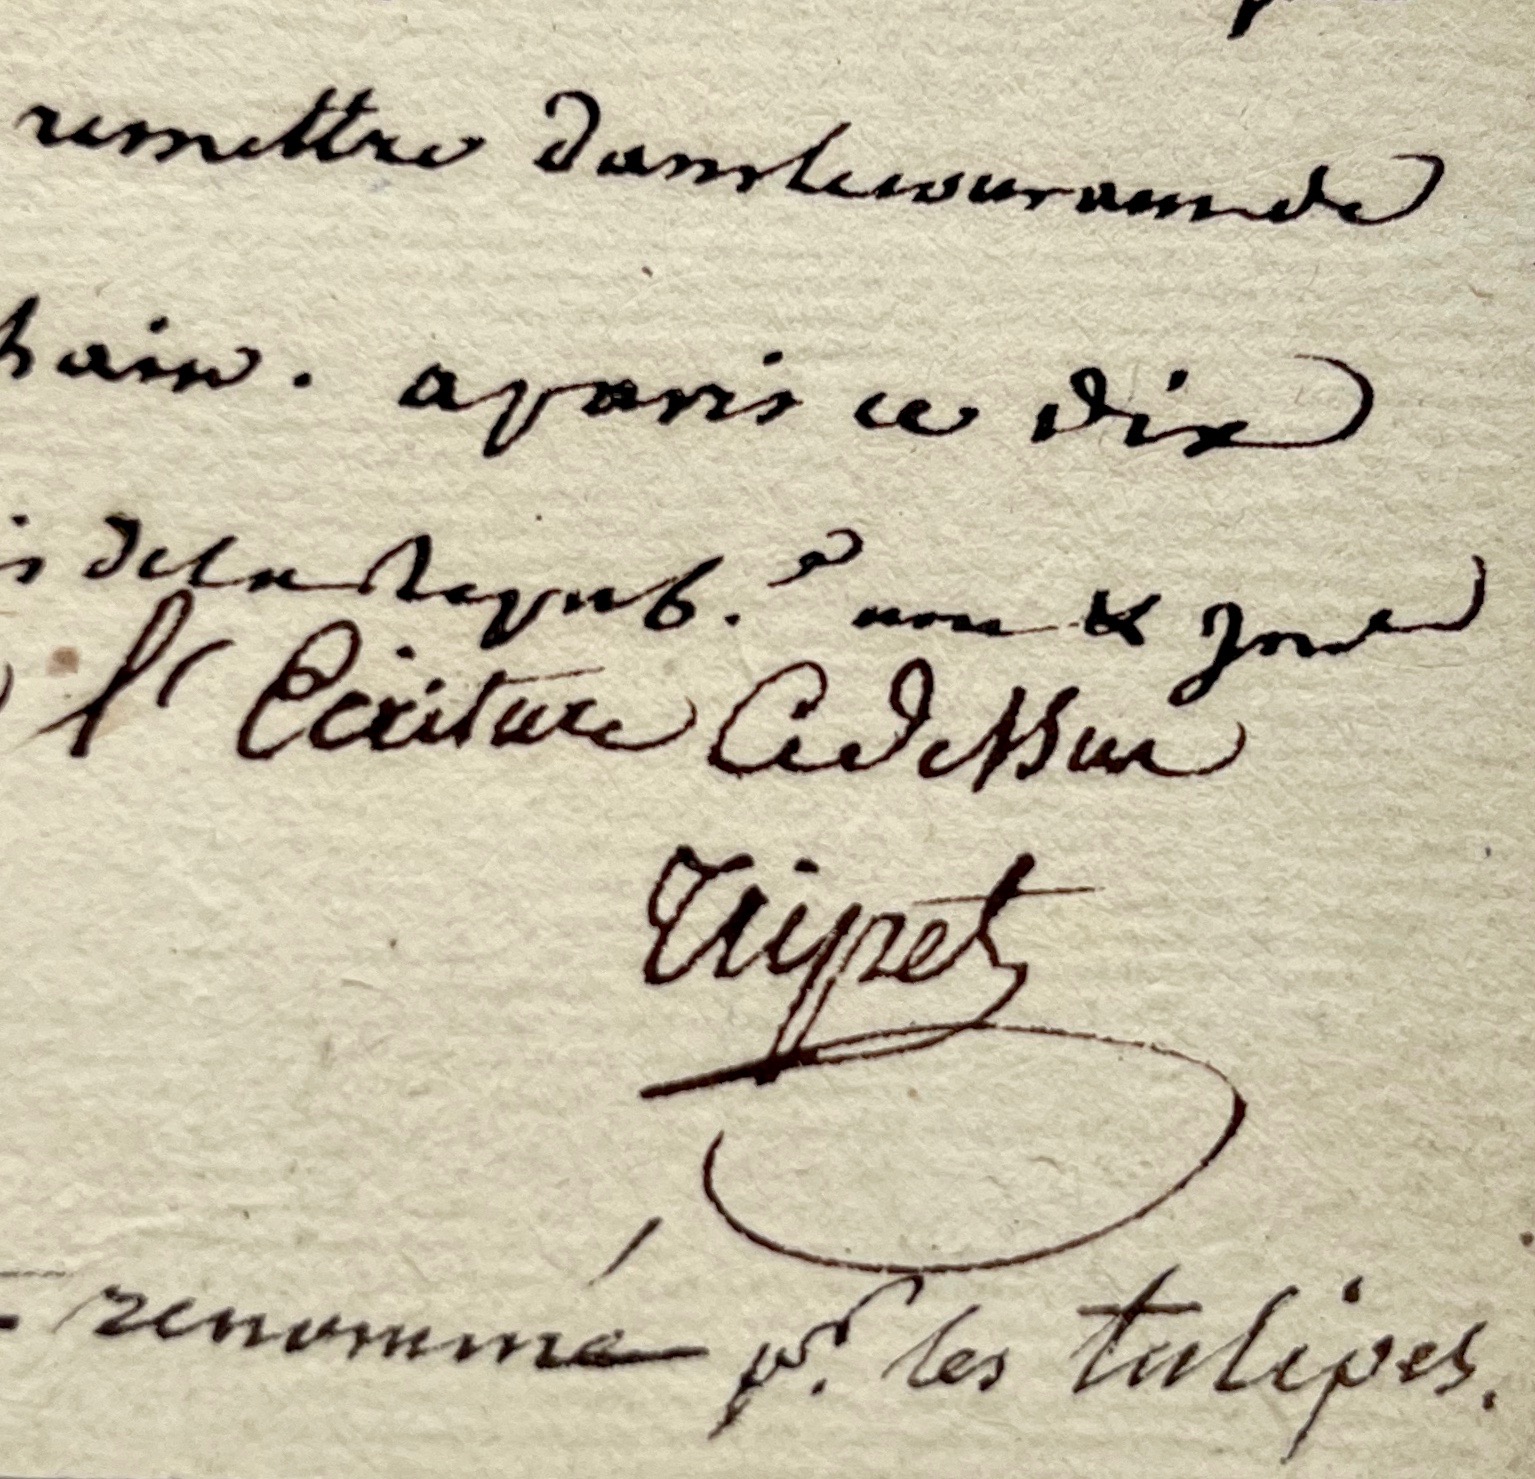 remettre dans le courann de
hain. a paris ce dix
is de la Repub.e une &
l'Ecriture Cy dessus
Tripet
renommé pr. les tulipes.